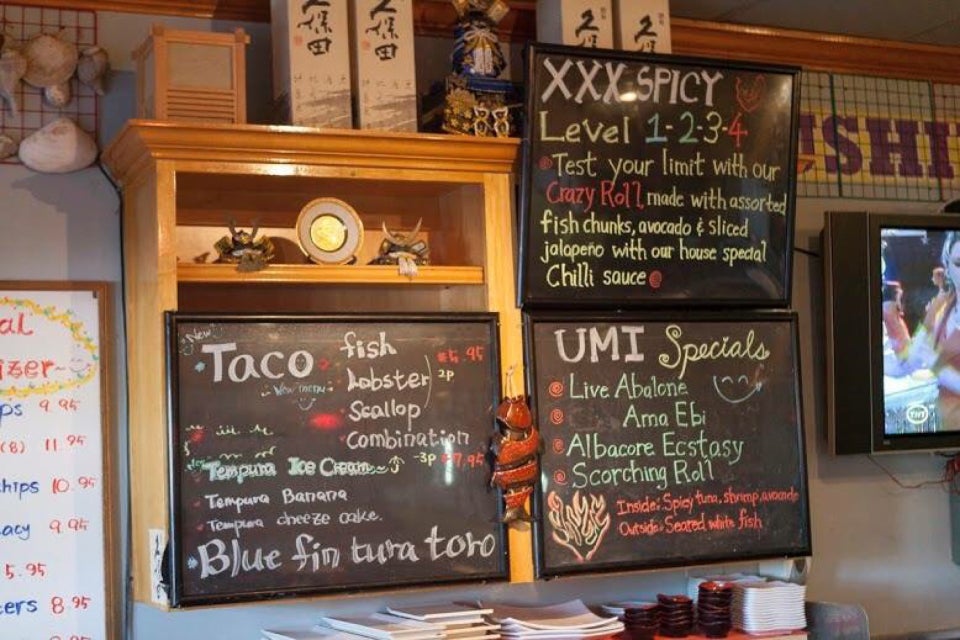 久保田
久保田
久
久
XXX SPICY
Level 1-2-3-4
Test your limit with our
Crazy Roll, made with assorted
fish chunks, avocado & sliced
jalapeño with our house special
Chilli sauce
USHI
al
izer
ps 9.95
(8) 11.95
hips 10.95
acy 9.95
5.95
ers 8.95
New
Taco
New menu
fish
Lobster
Scallop
combination
$5.95
2p
-3p $7.95
Tempura Ice Cream
Tempura Banana
Tempura cheeze cake.
Blue fin tuna toro
UMI Specials
Live Abalone
Ama Ebi
Albacore Ecstasy
Scorching Roll
Inside: Spicy tuna, shrimp, avocado
Outside: Seared white fish
TNT